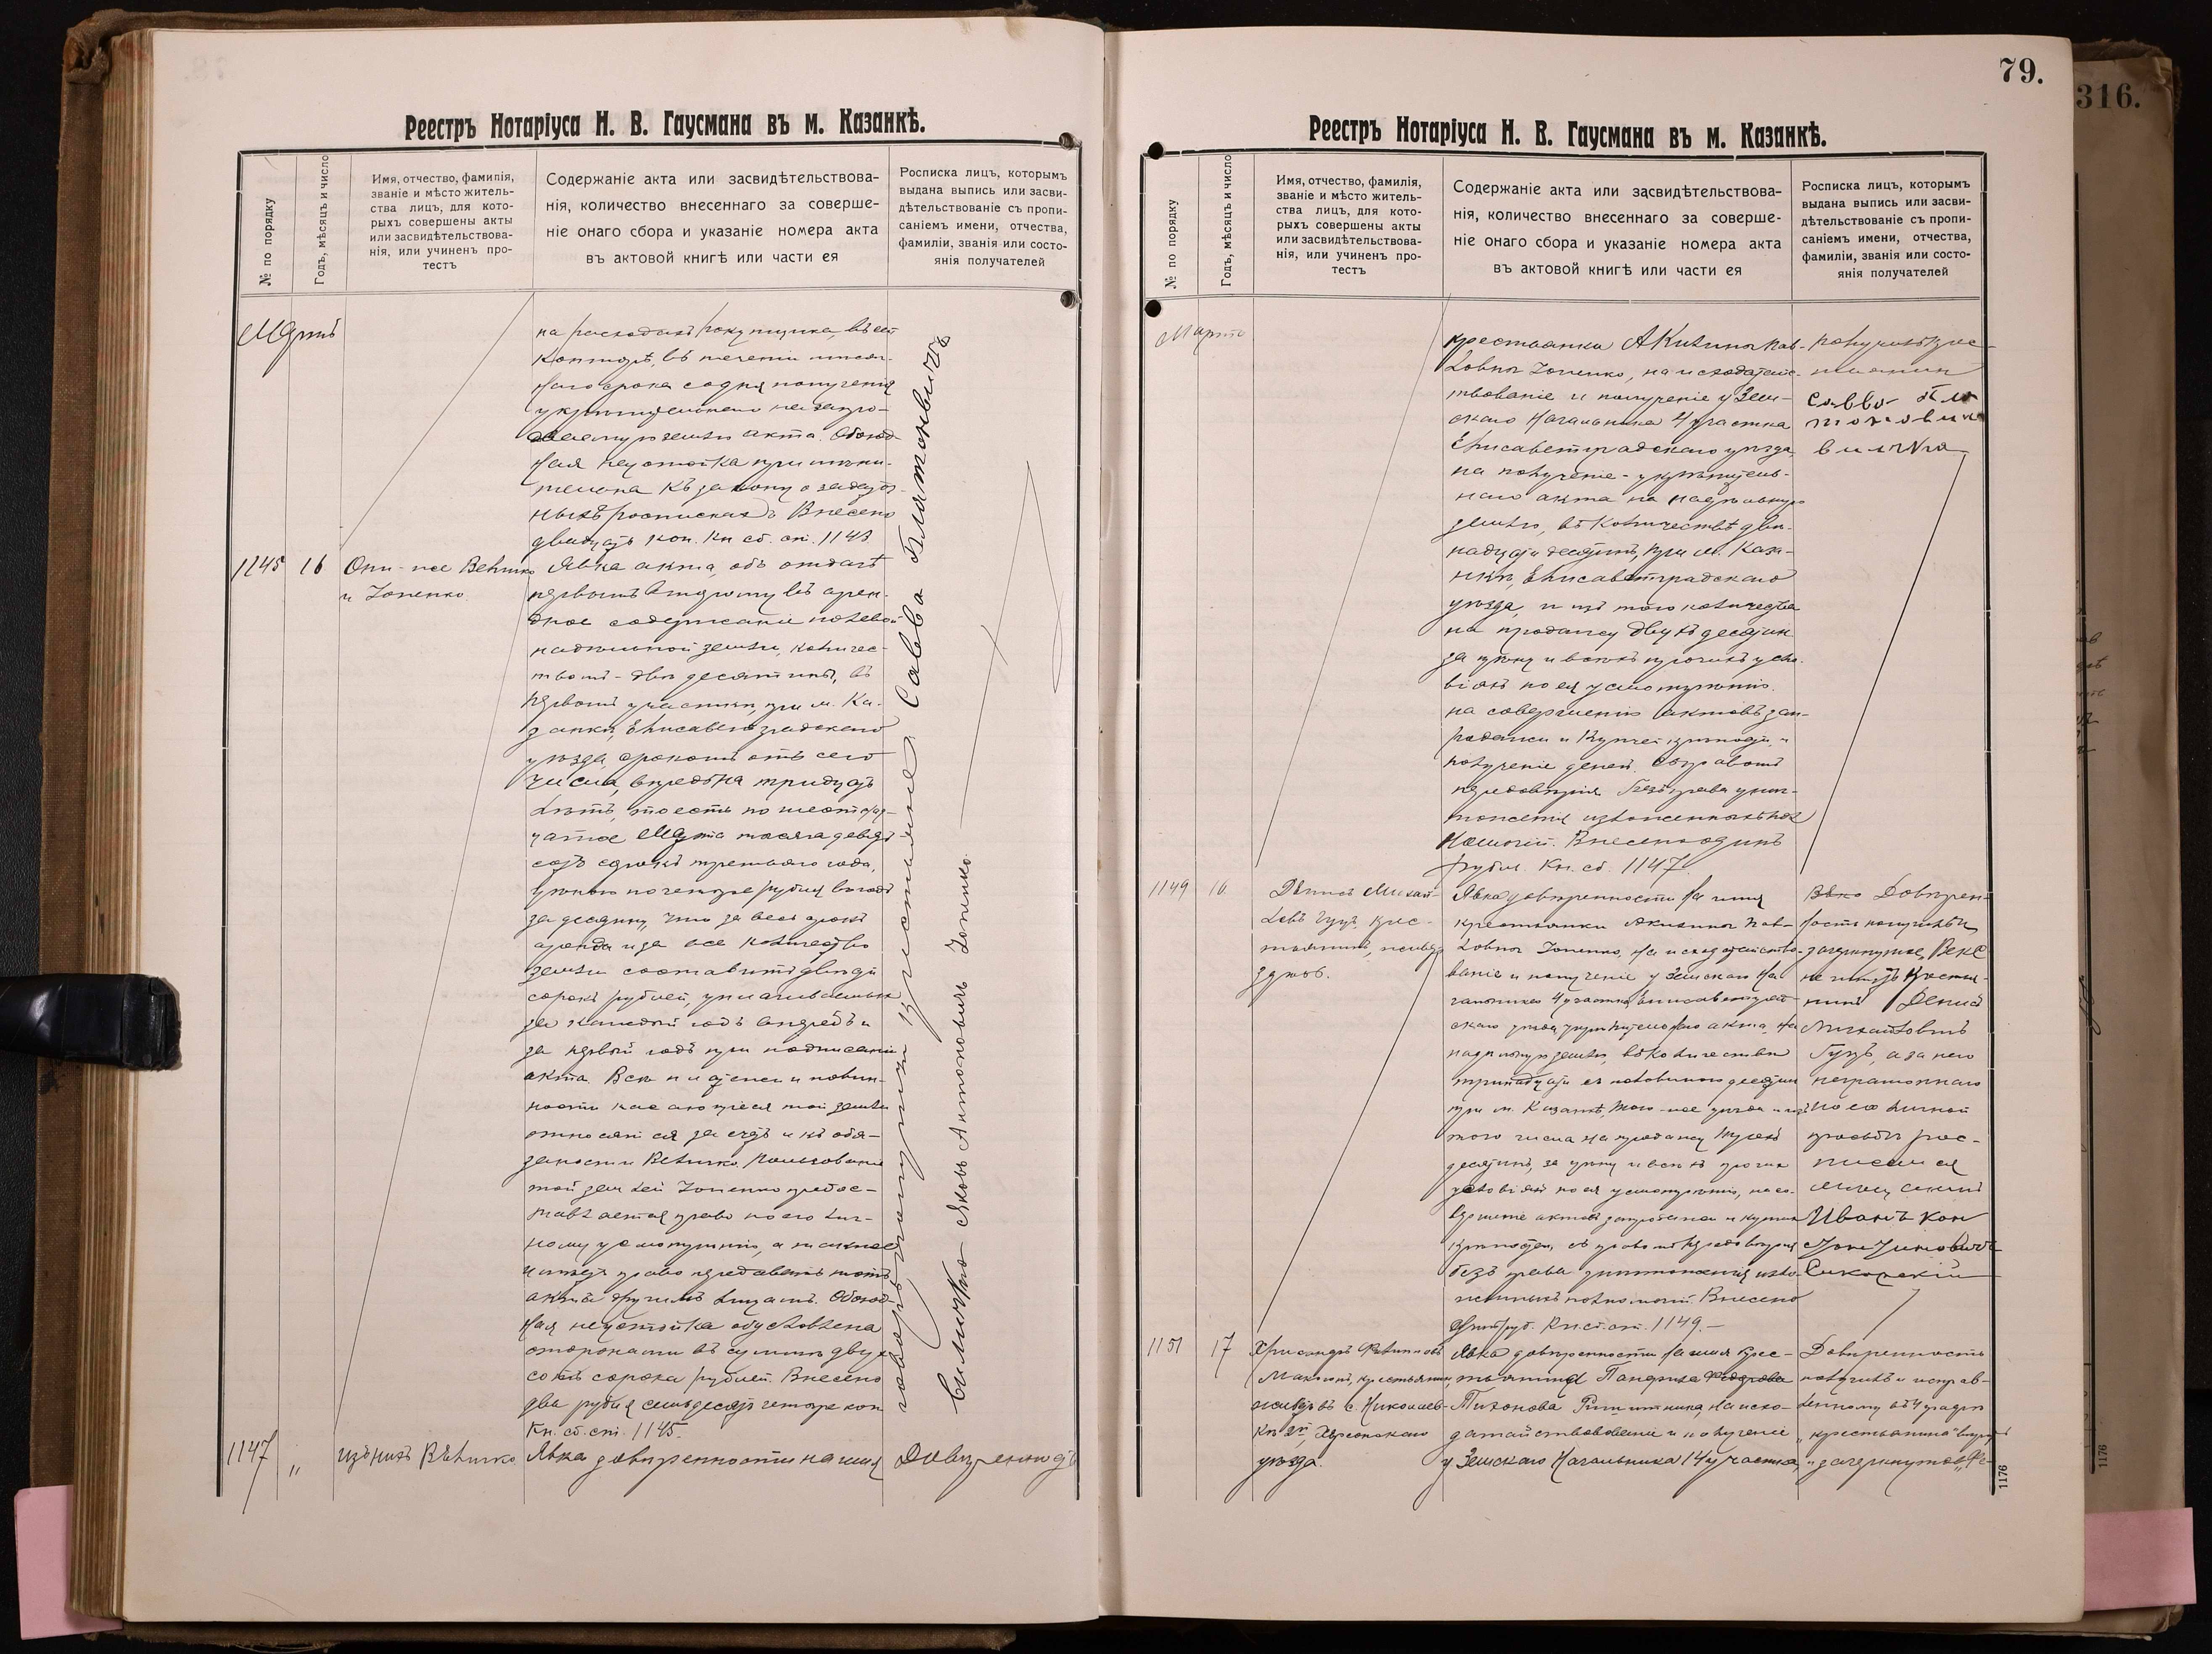 Реестръ Нотаріуса Н. В. Гаусмана въ м. Казанкѣ.
№ по порядку
Годъ, мѣсяцъ и число
Имя, отчество, фамилія,
званіе и мѣсто житель-
ства лицъ, для кото-
рыхъ совершены акты
или засвидѣтельствова-
нія, или учиненъ про-
тестъ
Содержаніе акта или засвидѣтельствова-
нія, количество внесеннаго за соверше-
ніе онаго сбора и указаніе номера акта
въ актовой книгѣ или части ея
Росписка лицъ, которымъ
выдана выпись или засви-
дѣтельствованіе съ пропи-
саніемъ имени, отчества,
фамиліи, званія или состо-
янія получателей
Мартъ
на расходахъ покупщика, въ сей
конторѣ, въ теченіи
срока со дня полученія
акта. Обоюд-
ная неустойка
къ закону о задаточ-
ныхъ роспискахъ Внесено
двадцать коп. Кн сб. ст. 1143
1145 16 Они-же Величко
и Зоненко
Явка акта, объ отдачѣ
первымъ второму въ арен-
дное содержаніе полевой
надѣльной земли, количес-
твомъ - двѣ десятины, въ
первомъ участкѣ, при м. Ка-
занкѣ, Елисаветградскаго
уѣзда, срокомъ отъ сего
числа, впредь на тридцать
лѣтъ, то есть по шестнад-
цатое Марта тысяча девять
сотъ сорокъ третьяго года,
цѣною по четыре рубля въ годъ
за десятину, что за весь срокъ
аренды и за все количество
земли составитъ двѣсти
сорокъ рублей, уплачиваемыхъ
за каждый годъ впередъ и
за первый годъ при подписаніи
акта. Всѣ платежи и повин-
ности касающіеся той земли
относятся за счетъ и къ обя-
занности Величко. Пользованіе
той землей Зоненко предос-
тавляется право по его лич-
ному усмотрѣнію, а также
имѣетъ право передавать тотъ
актъ другимъ лицамъ. Обоюд-
ная неустойка обусловлена
сторонами въ суммѣ двухъ
сотъ сорока рублей. Внесено
два рубля семьдесятъ четыре коп
Кн. сб. ст. 1145.
Савва Платоновичъ
Величко Яковъ Антоновичъ Зоненко.
1147 „ изъ нихъ Величко
Явка довѣренности на имя
Довѣренность
79.
316.
Реестръ Нотаріуса Н. В. Гаусмана въ м. Казанкѣ.
№ по порядку
Годъ, мѣсяцъ и число
Имя, отчество, фамилія,
званіе и мѣсто житель-
ства лицъ, для кото-
рыхъ совершены акты
или засвидѣтельствова-
нія, или учиненъ про-
тестъ
Содержаніе акта или засвидѣтельствова-
нія, количество внесеннаго за соверше-
ніе онаго сбора и указаніе номера акта
въ актовой книгѣ или части ея
Росписка лицъ, которымъ
выдана выпись или засви-
дѣтельствованіе съ пропи-
саніемъ имени, отчества,
фамиліи, званія или состо-
янія получателей
Марта
крестьянки Акилины Пав-
ловны Зоненко, на исходатайс-
твованіе и полученіе у Зем-
скаго Начальника 4 участка
Елисаветградскаго уѣзда,
на полученіе - укрѣпитель-
наго акта на надѣльную
землю, въ количествѣ двѣ-
надцати десятинъ, при м. Каза-
нкѣ, Елисаветградскаго
уѣзда, и изъ того количества
на продажу двухъ десятинъ
за цѣну и всѣхъ прочихъ усло-
віяхъ по ея усмотрѣнію.
на совершеніе актовъ зап-
родажи и купчей крѣпости, и
полученіе денегъ. Съ правомъ
передовѣрія безъ права унич-
тоженія изложенныхъ пол
номочій. Внесено одинъ
рубль. Кн. сб. 1147.
получилъ крес-
тьянинъ
Савва Пла
тоновичъ
Величко
1149 16. Денисъ Михай-
ловъ Гуцъ, крес-
тьянинъ,
здѣсь.
Явка довѣренности на имя
крестьянки Акилины Пав-
ловны Зоненко, на исходатайство-
ваніе и полученіе у Земскаго На
чальника 4 участка Елисаветград-
скаго уѣзда укрѣпительнаго акта на
надѣльную землю, въ количествѣ
тринадцати съ половиною десятинъ
при м. Казанкѣ, того-же уѣзда и изъ
того числа на продажу трехъ
десятинъ, за цѣну и всѣхъ прочихъ
условіяхъ по ея усмотрѣнію, на со-
вершеніе актовъ запродажи и купчей
крѣпости, съ правомъ передовѣрія
безъ права уничтоженія изло-
женныхъ полномочій. Внесено
руб. Кн. сб. ст. 1149.-
Довѣрен-
ность получилъ и
зачеркнутое
крестья-
нинъ Денисъ
Михайловъ
Гуцъ, а за него
неграмотнаго
по его личной
просьбѣ рос-
писался
мѣщанинъ
Иванъ Кон
стантиновичъ
Сикорскій
1151 17 Хрисанфъ Филипповъ
Максютъ, крестьянинъ,
живетъ въ с. Николаев-
кѣ 2й, Херсонскаго
уѣзда.
Явка довѣренности на имя крес-
тьянина
Тихонова на исхо-
датайствованіе и полученіе
у Земскаго Начальника 14 участка,
Довѣренность
получилъ и исправ-
ленному
„крестьянина"
и зачеркнутое
1176
1176